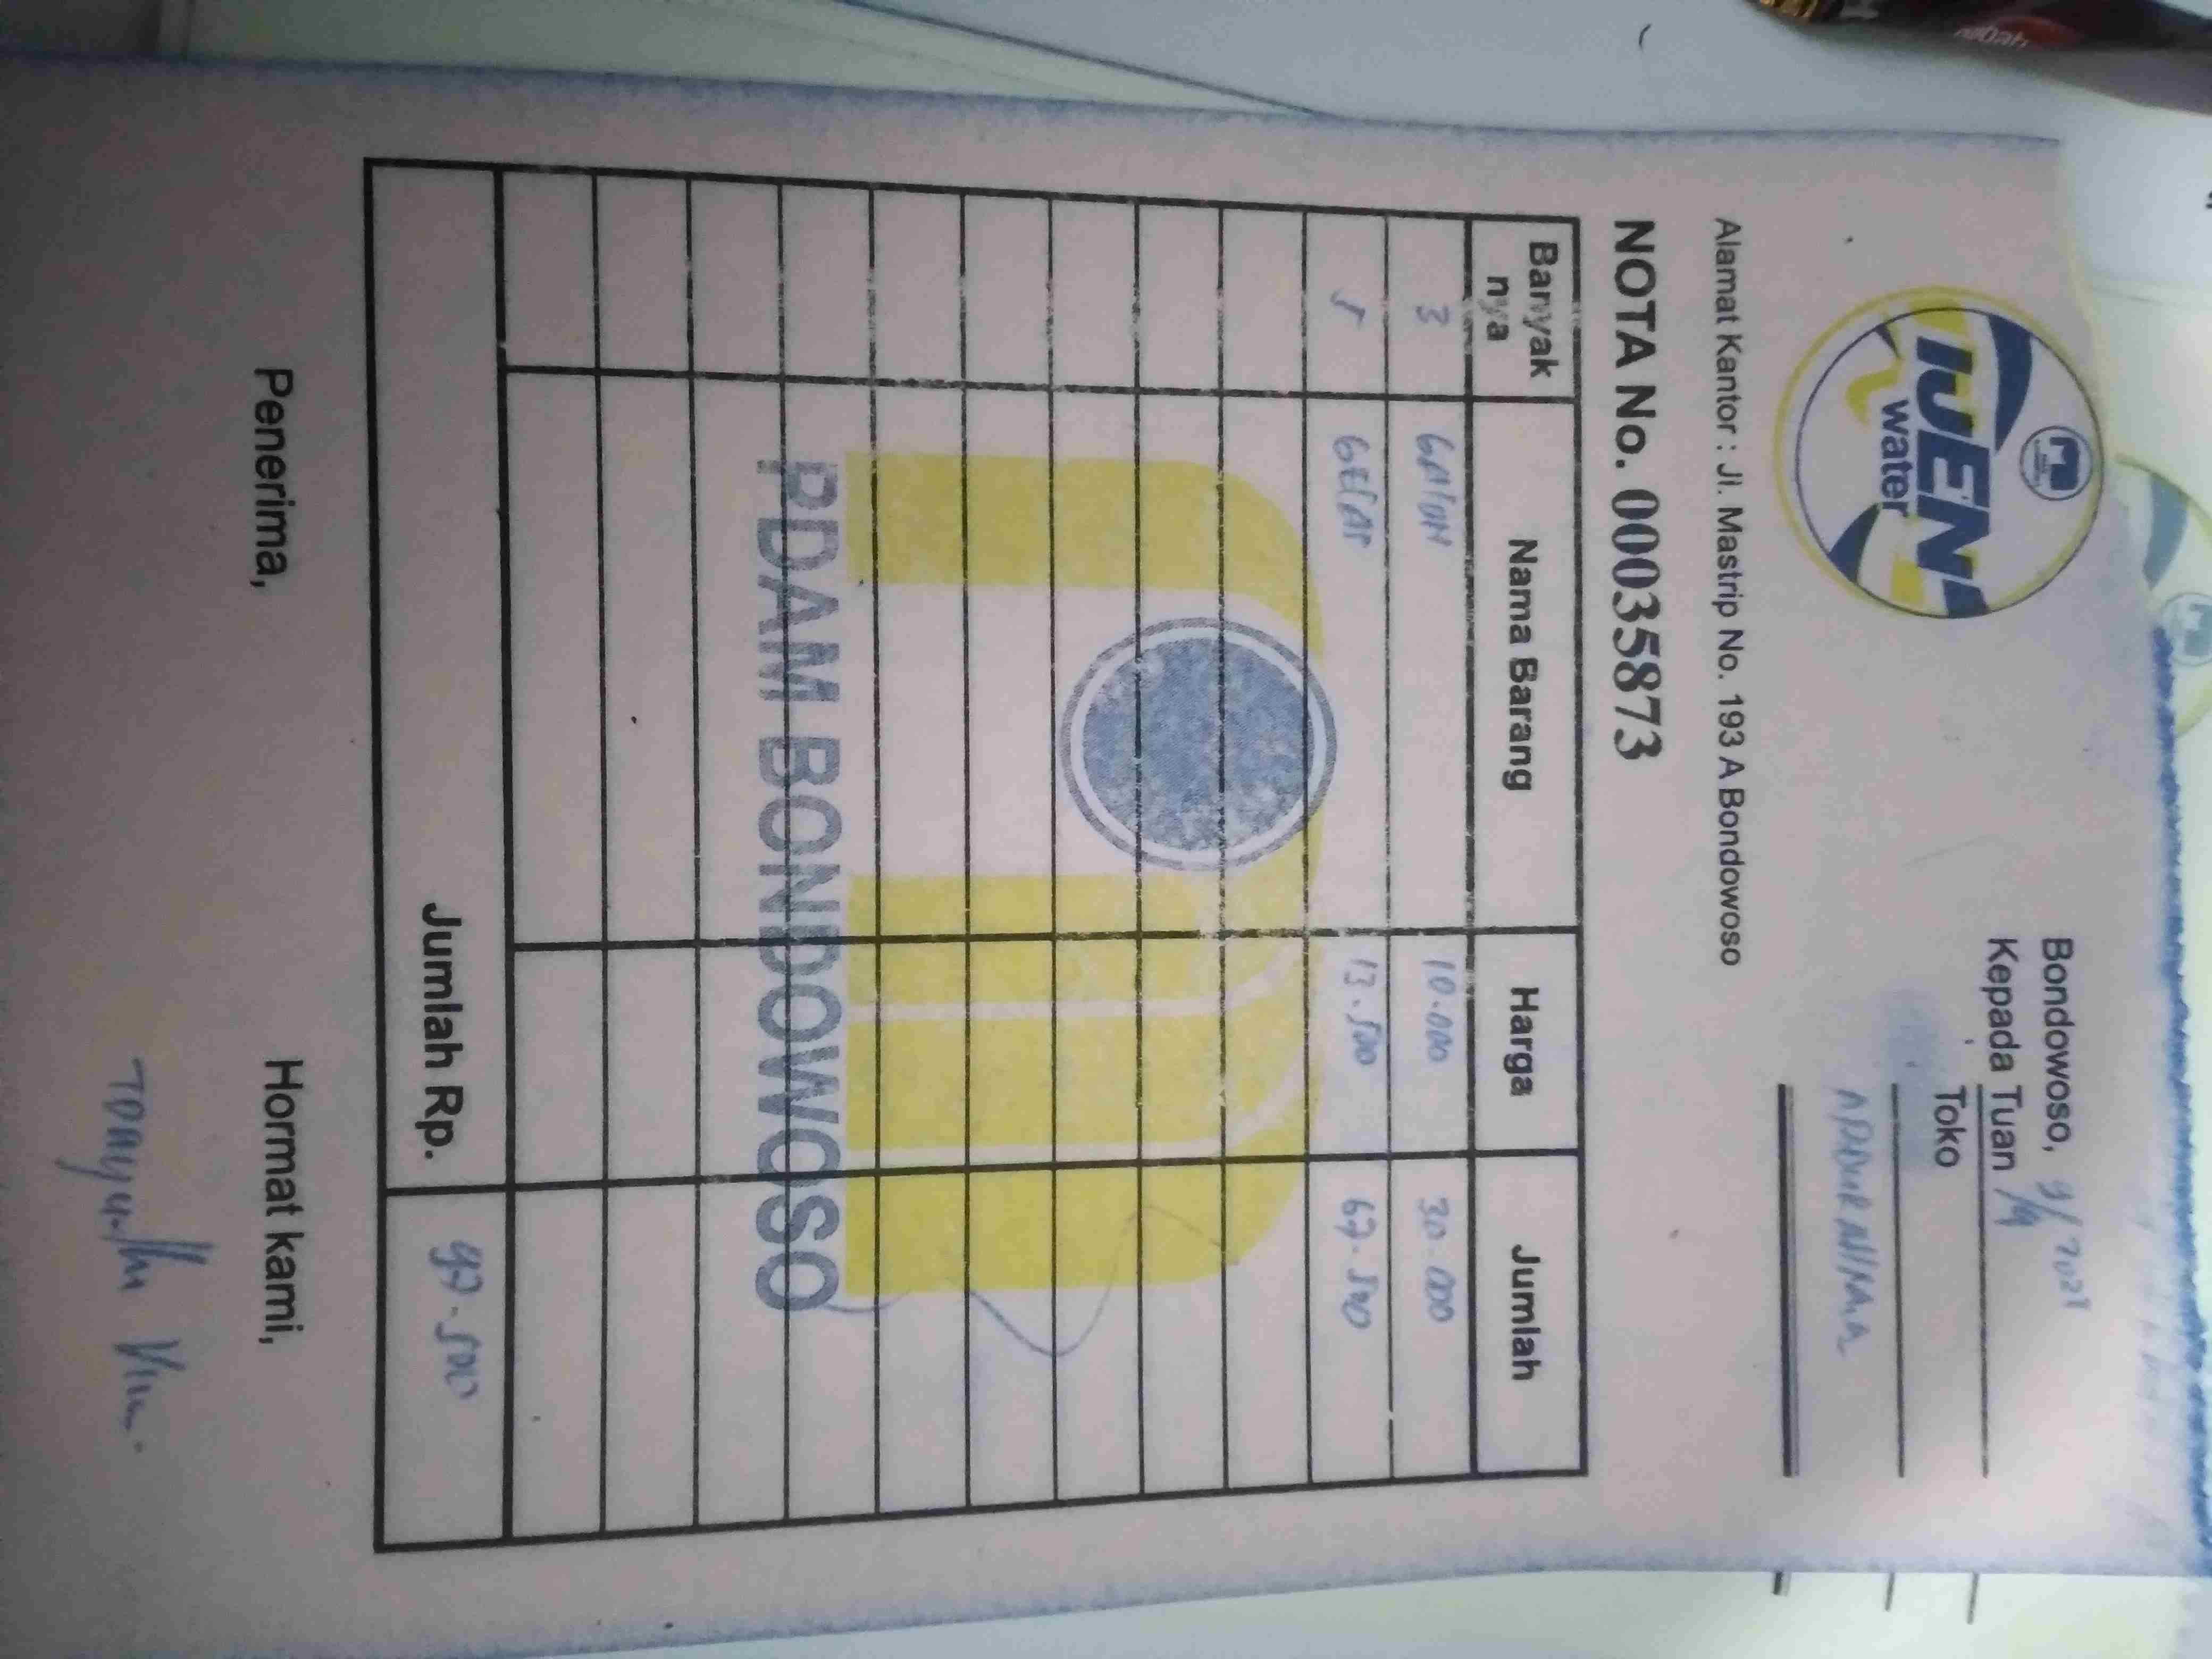 IJEN
water
Bondowoso, 9/9 2021
Kepada Tuan
Toko
Alamat Kantor : Jl. Mastrip No. 193 A Bondowoso
NOTA No. 00035873
Banyak nya Nama Barang Harga Jumlah
3 GALON 10.000 30.000
5 GELAS 13.500 67.500
PDAM BONDOWOSO
Jumlah Rp. 97.500
Penerima, Hormat kami,